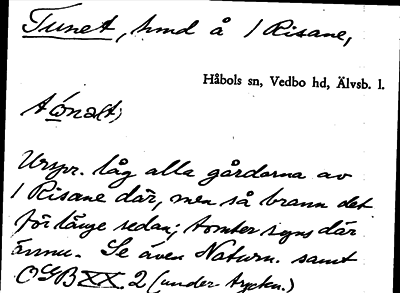 Tunet, hmd å 1 Risane,
Håbols sn, Vedbo hd, Älvsb. l.
Urspr. låg alla gårdarna av
1 Risane där, men så brann det
för länge sedan; tomter syns där
ännu. Se även Naturn. samt
OGB XX 2 (under tryckn.)